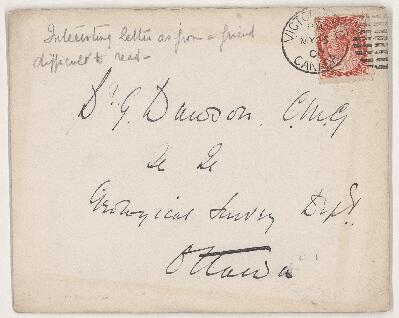 Interesting letter as from a friend
difficult to read -
VICTO
MY
CANADA
Dr G. Dawson. C.M.G
&c &c
Geological Survey Dept.
Ottawa